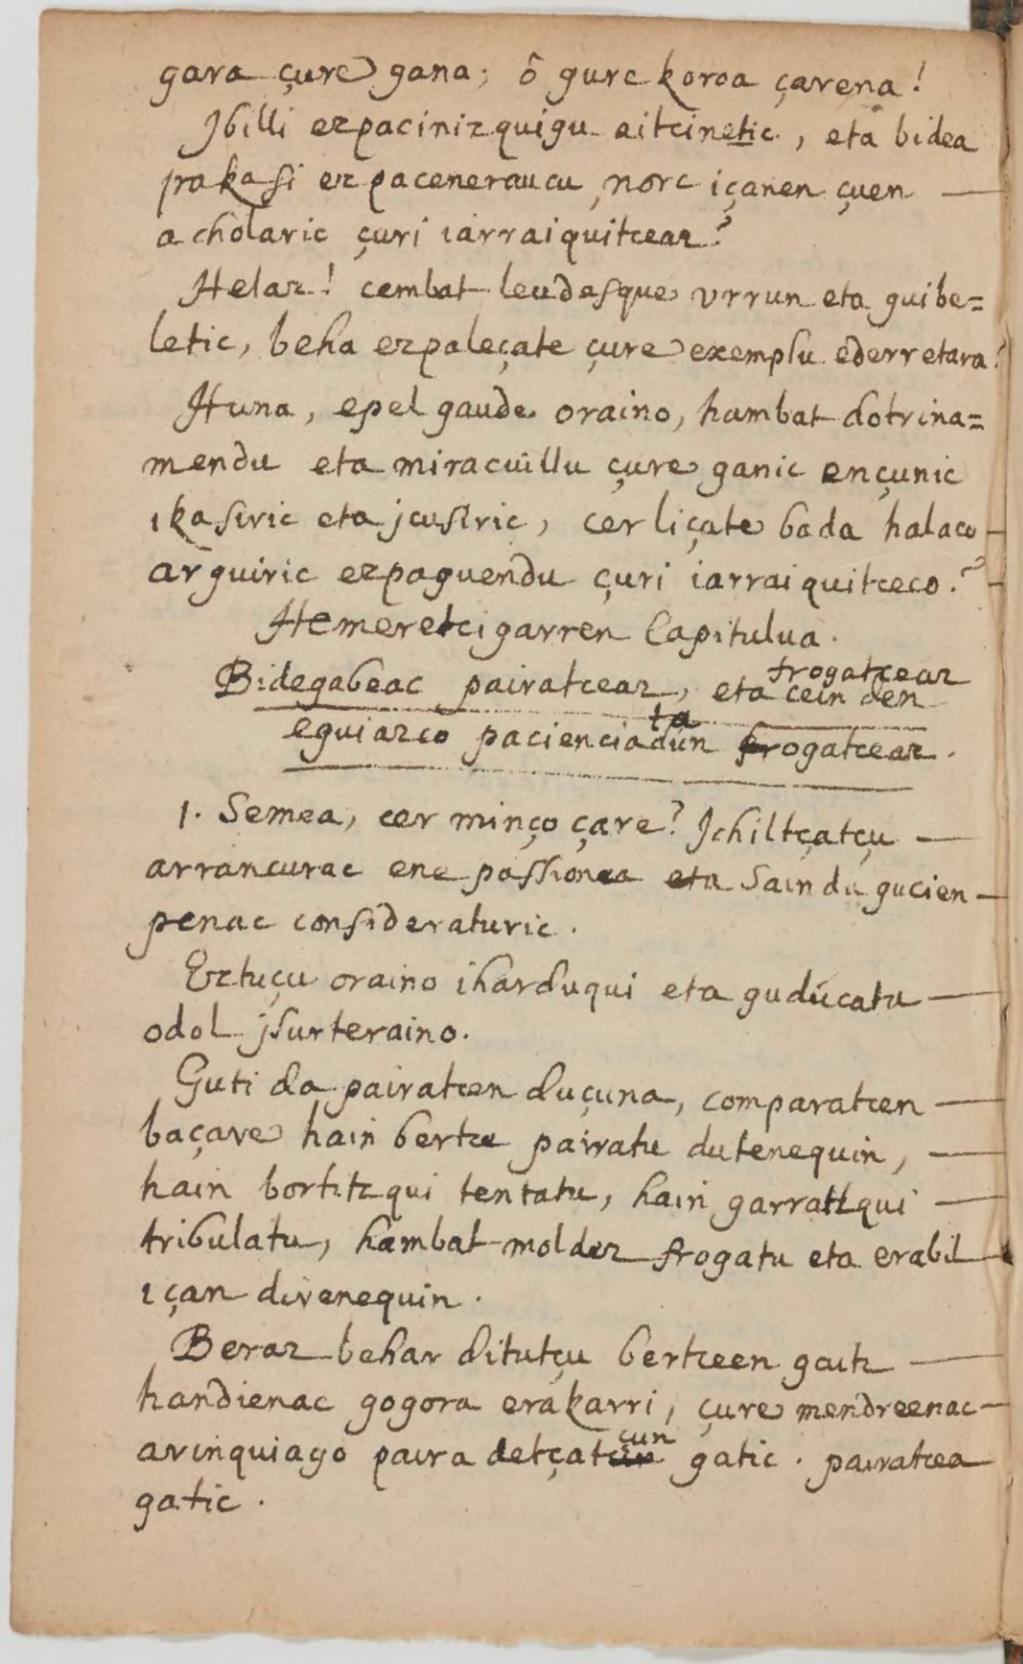 gara çure gana; ô gure koroa çarena!
Jbilli ezpacinizquigu aitcinetic, eta bidea
irakasi ez paceneraucu, norc içanen çuen
acholaric çuri iarraiquitceaz?
Helaz! cembat leudesque vrrun eta guibe=
letic, beha ezpaleçate çure exemplu ederretara!
Huna, epel gaude oraino, hambat dotrina=
mendu eta miracuillu çure ganic ençunic
ikasiric eta jcusiric, cer liçate bada halaco
arguiric ezpaguendu çuri iarraiquitceco?
Hemeretcigarren Capitulua.
Bidegabeac pairatceaz, eta cein den frogatceaz
eguiazco paciencia ta dun frogatceaz.
1. Semea, cer minço çare? Jchiltçatçu
arrancurac ene passionea eta Saindu gucien
penac consideraturic.
Eztuçu oraino iharduqui eta guducatu
odol jsurteraino.
Guti da pairatcen duçuna, comparatcen
baçare hain bertce pairatu dutenequin,
hain bortitzqui tentatu, hain garratzqui
tribulatu, hambat moldez frogatu eta erabil
içan direnequin.
Beraz behar ditutçu bertceen gaitz
handienac gogora erakarri, çure mendreenac
arinquiago paira detçatçun gatic. pairatcea
gatic.